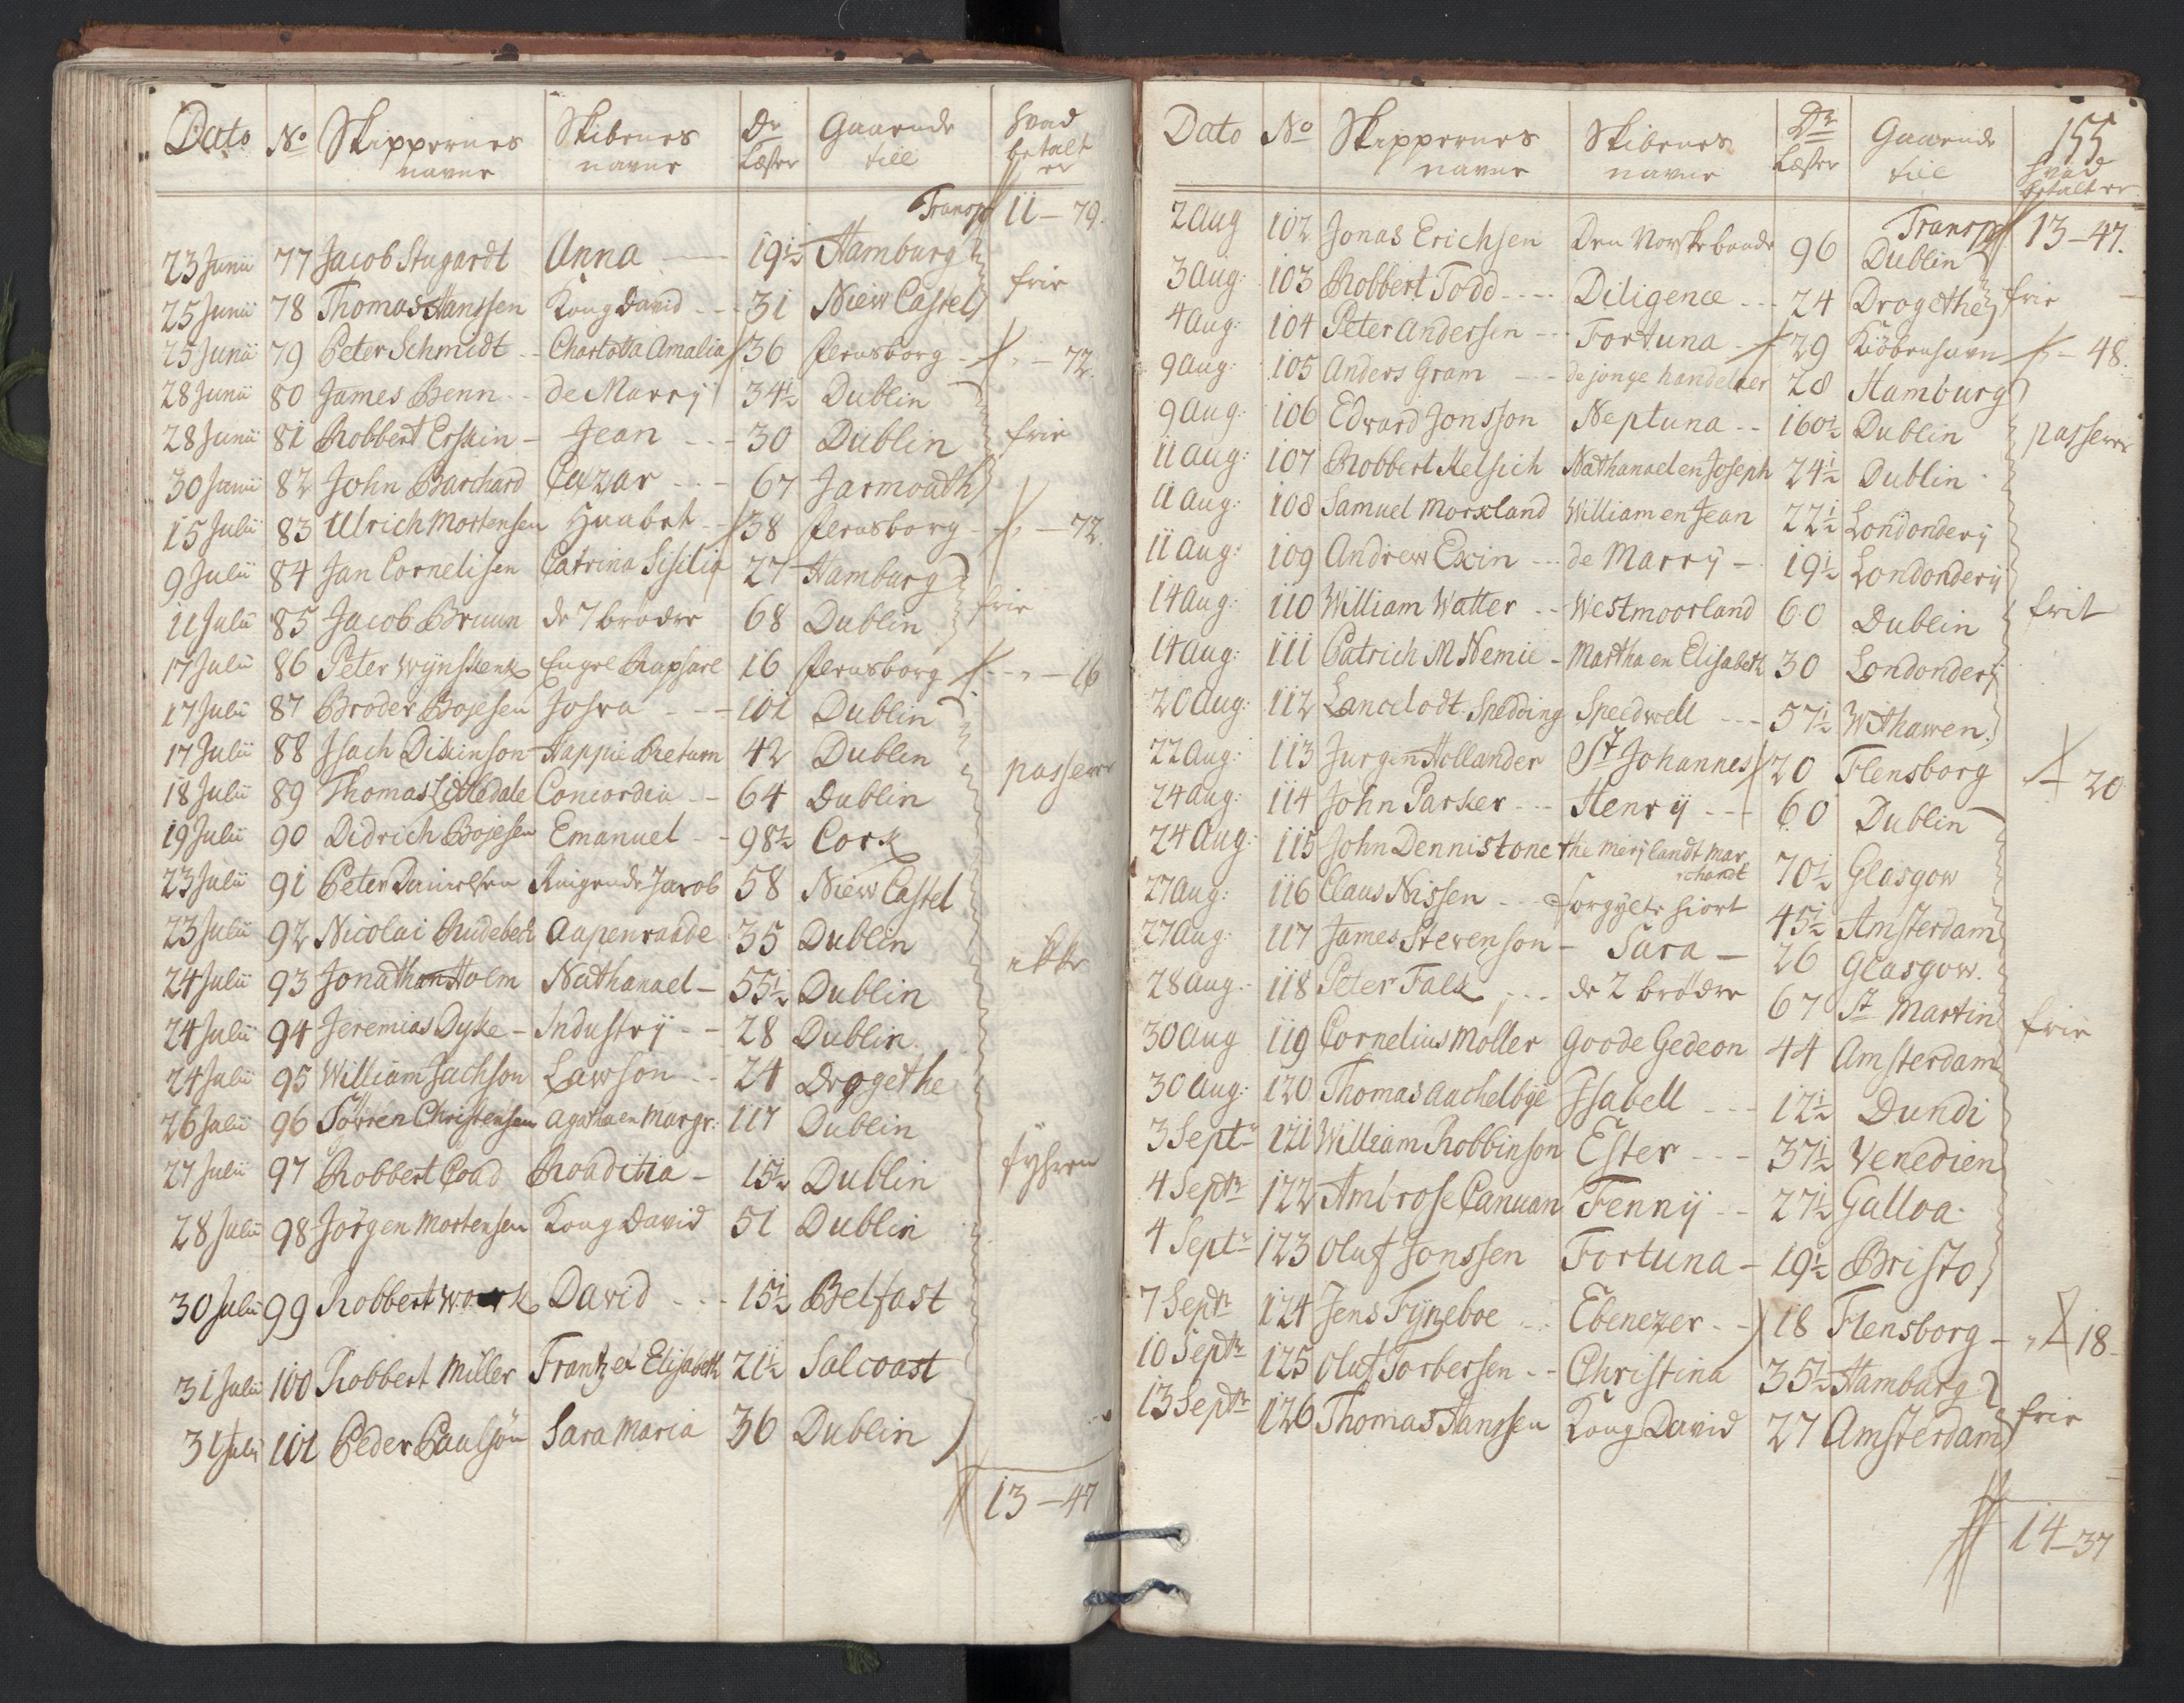 Dato No Skippernes navne Skibenes navne Dr Læster Gaaende till hvad betalt er
Transp 11 - 79.
23 Junii 77 Jacob Stugardt Anna 19½ Hamburg
25 Junii 78 Thomas Hanssen Kong David 31 Niew Castel frie
25 Junii 79 Peter Schmidt Charlotta Amalia 36 fleusborg - 72.
28 Junii 80 James Benn de Marrÿ 34½ Dublin
28 Junii 81 Robbert Erskin Jean 30 Dublin frie
30 Junii 82 John Barchard Cæzar 67 Jarmouth
15 Julii 83 Ulrich Mortensen Haabet 38 fleusborg - 72.
9 Julii 84 Jan Cornelisen Catrina Sisilia 27 Hamburg
11 Julii 85 Jacob Bruun de 7 brødre 68 Dublin frie
17 Julii 86 Peter Wÿnskenk Engel Raphael 16 fleusborg - 16
17 Julii 87 Broder Bojesen Josva 101 Dublin
17 Julii 88 Isach Dikinson Happie Return 42 Dublin passerer
18 Julii 89 Thomas Litledale Concordia 64 Dublin
19 Julii 90 Didrich Bojesen Emanuel 98½ Cork
23 Julii 91 Peter Danielsen Ringende Jacob 58 Niew Castel
23 Julii 92 Nicolai Rudebech Aapenraade 35 Dublin ikke
24 Julii 93 Jonathan Holm Nathanael 55½ Dublin
24 Julii 94 Jeremias Dyke Industrÿ 28 Dublin.
24 Julii 95 William Jachson Lawson 24 Drogethe
26 Julii 96 Sørren Christensen Agatha en Margr: 117 Dublin
27 Julii 97 Robbert Coad Roaditia 15½ Dublin fyhren
28 Julii 98 Jörgen Mortensen Kong David 51 Dublin
30 Julii 99 Robbert Work David 15½ Belfast
31 Julii 100 Robbert Miller Frantz et Elisabeth 21½ Salcoast
31 Julii 101 Peder Paulsøn Sara Maria 36 Dublin
13 - 47
155
Dato No Skippernes navne Skibenes navne Dr Læster Gaaende till hvad betalt er
Transp 13 - 47.
2 Aug 102 Jonas Erichsen Den Norske bonde 96 Dublin
3 Aug: 103 Robbert Todd Diligence 24 Drogethe frie
4 Aug: 104 Peter Andersen Fortuna 29 Kiöbenhavn - 48.
9 Aug: 105 Anders Gram de jonge handeler 28 Hamburg
9 Aug: 106 Edvard Jonsson Neptuna 160½ Dublin passerer
11 Aug: 107 Robbert Kelsich Nathanael en Joseph 24½ Dublin
11 Aug: 108 Samuel Morxland William en Jean 22½ Londonderÿ
11 Aug: 109 Andrew Exin de Marrÿ 19½ Londonderÿ
14 Aug: 110 William Watter Westmoorland 60 Dublin frit
14 Aug: 111 Patrich M Nemie Martha en Elisabeth 30 Londonderÿ
20 Aug: 112 Lancelodt Spedding Speedwell 57½ Withawen
22 Aug: 113 Jurgen Hollander St Johannes 20 Flensborg - 20
24 Aug: 114 John Parker Henrÿ 60 Dublin
24 Aug: 115 John Dennistone the Merÿlandt Mar
rchandt 70½ Glasgow
27 Aug: 116 Claus Nissen Forgylte Hiort 45½ Amsterdam
27 Aug: 117 James Stevenson Sara 26 Glasgow.
28 Aug: 118 Peter Falk de 2 brødre 67 St Martin frie
30 Aug 119 Cornelius Møller Goode Gedeon 44 Amsterdam
30 Aug: 120 Thomas Aachelbÿe Isabell 12½ Dundi
3 Septr 121 William Robbinson Ester 37½ Venedien
4 Septr 122 Ambrose Canuan Fennÿ 27½ Galloa
4 Septr 123 Oluf Jonssen Fortuna 19½ Bristo
7 Septr 124 Jens Fÿneboe Ebenezer 18 Flensborg - 18
10 Septr 125 Oluf Torbersen Christina 35½ Hamburg
13 Septr 126 Thomas Hanssen Kong David 27 Amsterdam frie
14 - 37